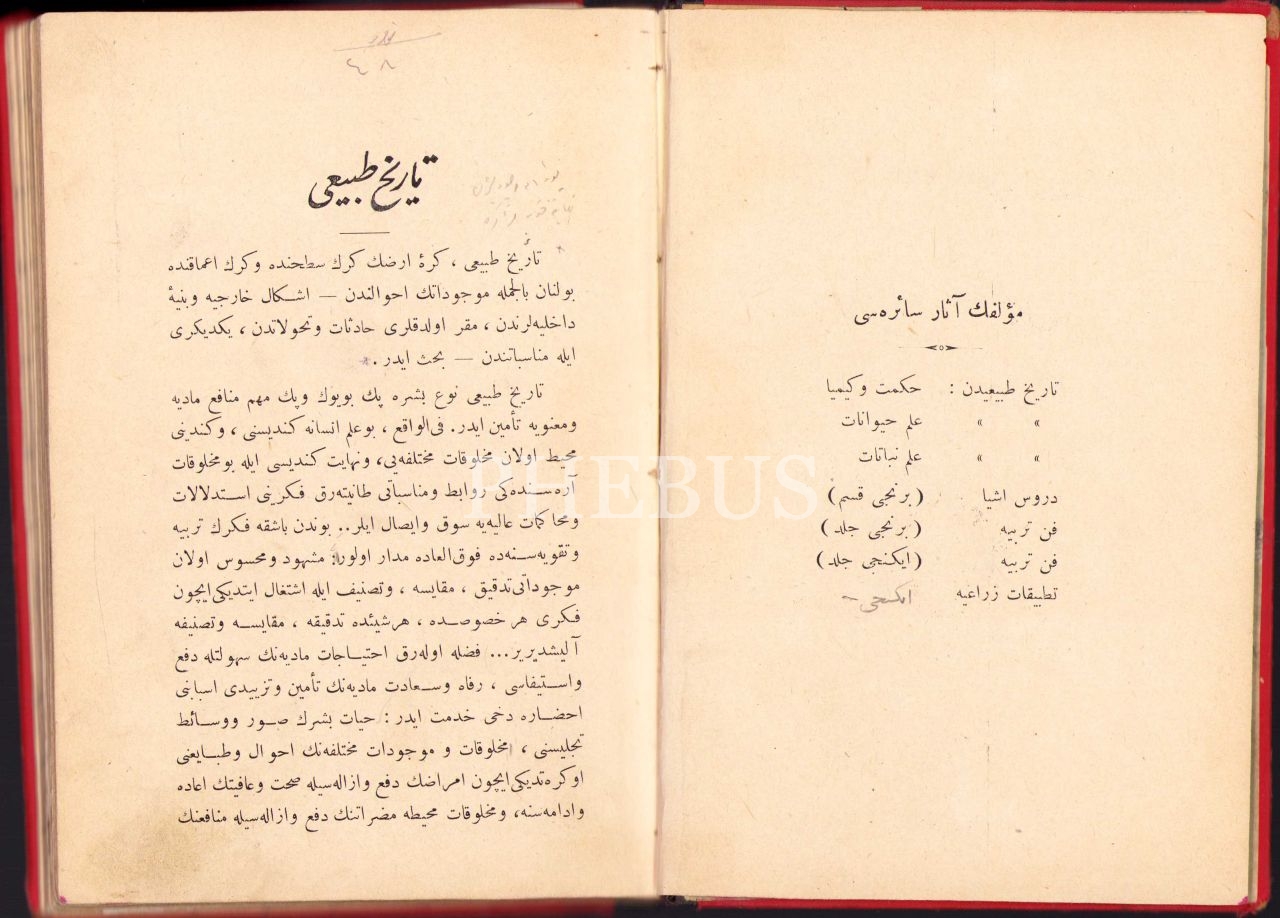 مؤلفك آثار سائره‌سی
تاریخ طبیعیدن : حكمت وكیمیا
» » علم حیوانات
» » علم نباتات
دروس اشیا (برنجی قسم)
فن تربیه (برنجی جلد)
فن تربیه (ایكنجی جلد)
تطبیقات زراعیه ایكنجی
٤٨
تاریخ طبیعی
تاریخ طبیعی ، كرهٔ ارضك كرك سطحنده وكرك اعماقنده
بولنان بالجمله موجوداتك احوالندن — اشكال خارجیه وبنیهٔ
داخلیه‌لرندن ، مقر اولدقلری حادثات وتحولاتدن ، یكدیكری
ایله مناسباتندن — بحث ایدر .
تاریخ طبیعی نوع بشره پك بویوك وپك مهم منافع مادیه
ومعنویه تأمین ایدر. فی‌الواقع ، بوعلم انسانه كندیسنی ، وكندینی
محیط اولان مخلوقات مختلفه‌یی، ونهایت كندیسی ایله بومخلوقات
آره‌سنده‌كی روابط ومناسباتی طانیته‌رق فكرینی استدلالات
ومحاكمات عالیه‌یه سوق وایصال ایلر.. بوندن باشقه فكرك تربیه
وتقویه‌سنه‌ده فوق‌العاده مدار اولور: مشهود ومحسوس اولان
موجوداتی تدقیق ، مقایسه ، وتصنیف ایله اشتغال ایتدیكی ایچون
فكری هر خصوصده ، هرشیئده تدقیقه ، مقایسه وتصنیفه
آلیشدیریر... فضله اوله‌رق احتیاجات مادیه‌نك سهولتله دفع
واستیفاسی ، رفاه وسعادت مادیه‌نك تأمین وتزییدی اسبابنی
احضاره دخی خدمت ایدر : حیات بشرك صور ووسائط
تجلیسنی ، مخلوقات و موجودات مختلفه‌نك احوال وطبایعنی
اوكره‌تدیكی ایچون امراضك دفع وازاله‌سیله صحت وعافیتك اعاده
وادامه‌سنه، ومخلوقات محیطه مضراتنك دفع وازاله‌سیله منافعنك
PHEBUS